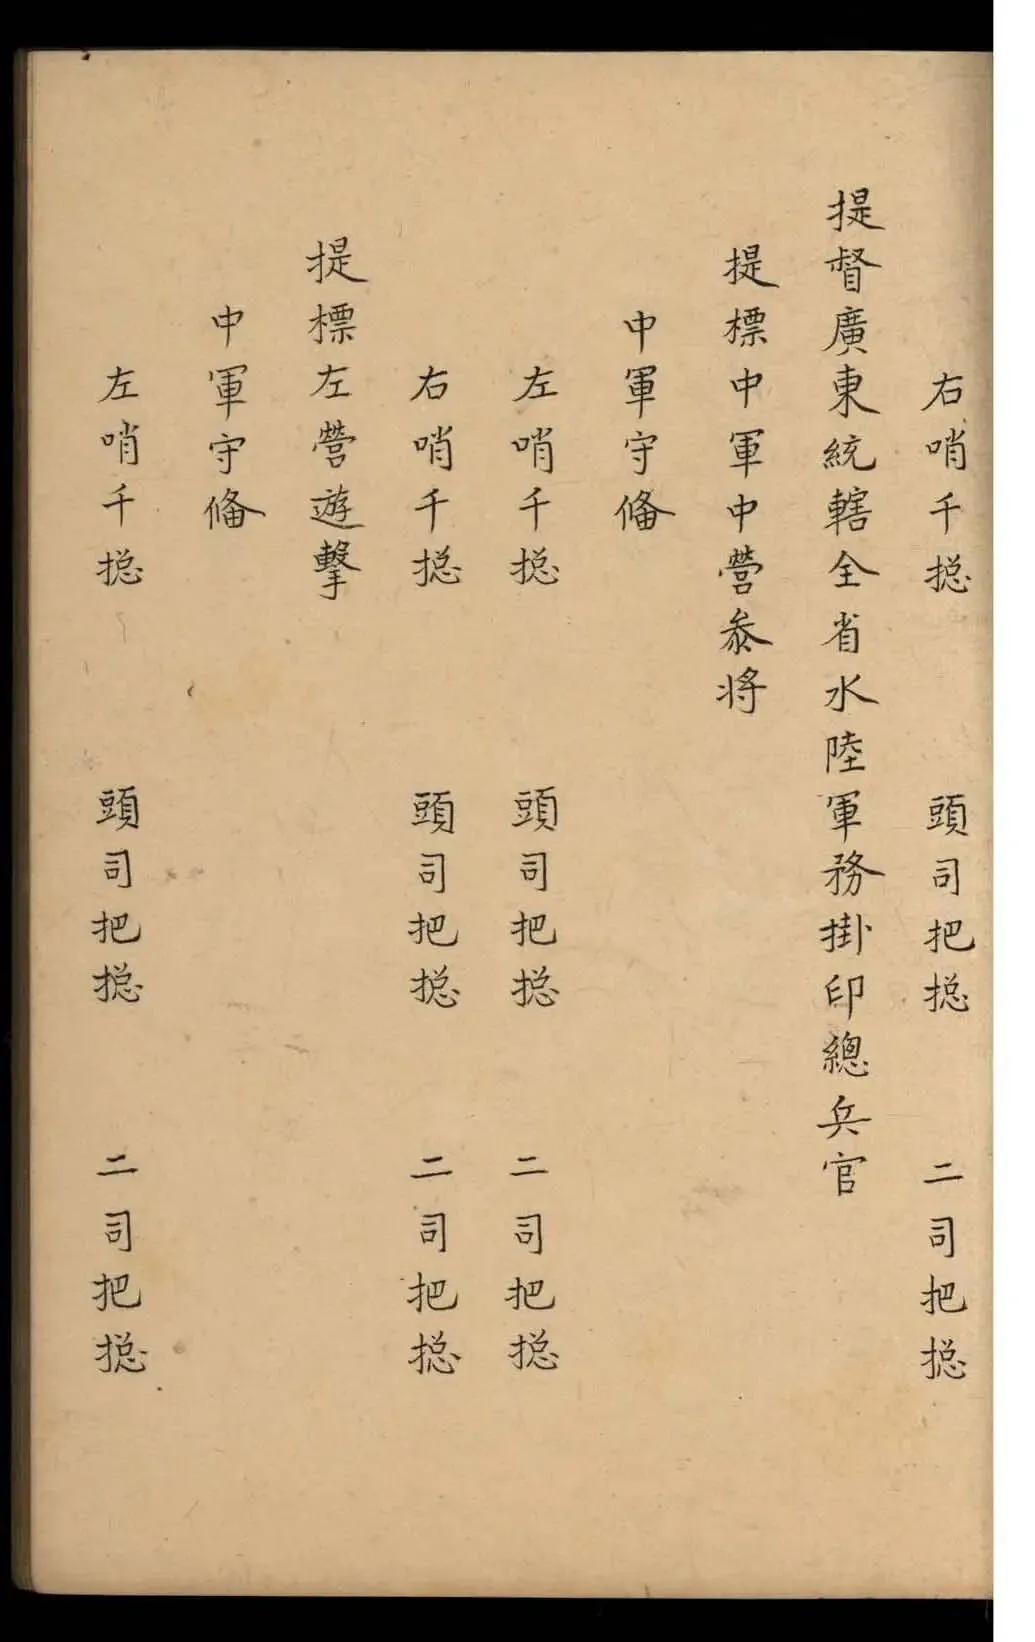 右哨千摠　頭司把摠　二司把摠
提督廣東統轄全省水陸軍務掛印總兵官
提標中軍中營叅将
中軍守備
左哨千摠　頭司把摠　二司把摠
右哨千摠　頭司把摠　二司把摠
提標左營遊擊
中軍守備
左哨千摠　頭司把摠　二司把摠